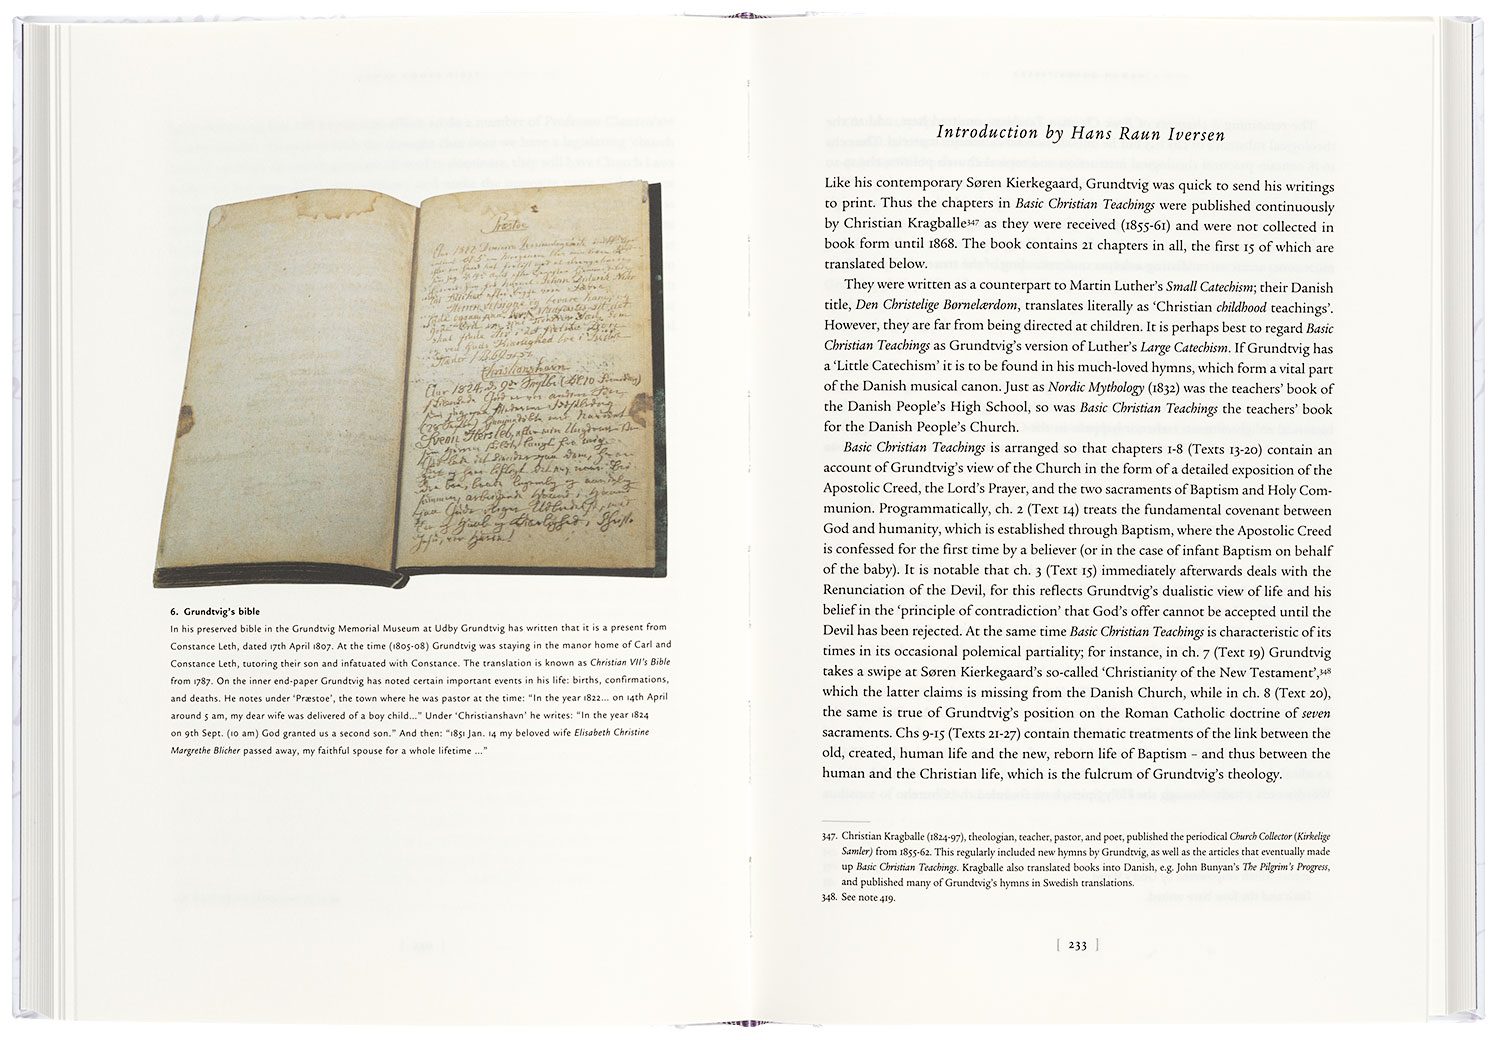 Præstoe
Christianshavn
6. Grundtvig's bible
In his preserved bible in the Grundtvig Memorial Museum at Udby Grundtvig has written that it is a present from
Constance Leth, dated 17th April 1807. At the time (1805-08) Grundtvig was staying in the manor home of Carl and
Constance Leth, tutoring their son and infatuated with Constance. The translation is known as Christian VII's Bible
from 1787. On the inner end-paper Grundtvig has noted certain important events in his life: births, confirmations,
and deaths. He notes under 'Præstoe', the town where he was pastor at the time: "In the year 1822... on 14th April
around 5 am, my dear wife was delivered of a boy child..." Under 'Christianshavn' he writes: "In the year 1824
on 9th Sept. (10 am) God granted us a second son." And then: "1851 Jan. 14 my beloved wife Elisabeth Christine
Margrethe Blicher passed away, my faithful spouse for a whole lifetime ..."
Introduction by Hans Raun Iversen
Like his contemporary Søren Kierkegaard, Grundtvig was quick to send his writings
to print. Thus the chapters in Basic Christian Teachings were published continuously
by Christian Kragballe347 as they were received (1855-61) and were not collected in
book form until 1868. The book contains 21 chapters in all, the first 15 of which are
translated below.
They were written as a counterpart to Martin Luther's Small Catechism; their Danish
title, Den Christelige Børnelærdom, translates literally as 'Christian childhood teachings'.
However, they are far from being directed at children. It is perhaps best to regard Basic
Christian Teachings as Grundtvig's version of Luther's Large Catechism. If Grundtvig has
a 'Little Catechism' it is to be found in his much-loved hymns, which form a vital part
of the Danish musical canon. Just as Nordic Mythology (1832) was the teachers' book of
the Danish People's High School, so was Basic Christian Teachings the teachers' book
for the Danish People's Church.
Basic Christian Teachings is arranged so that chapters 1-8 (Texts 13-20) contain an
account of Grundtvig's view of the Church in the form of a detailed exposition of the
Apostolic Creed, the Lord's Prayer, and the two sacraments of Baptism and Holy Com-
munion. Programmatically, ch. 2 (Text 14) treats the fundamental covenant between
God and humanity, which is established through Baptism, where the Apostolic Creed
is confessed for the first time by a believer (or in the case of infant Baptism on behalf
of the baby). It is notable that ch. 3 (Text 15) immediately afterwards deals with the
Renunciation of the Devil, for this reflects Grundtvig's dualistic view of life and his
belief in the 'principle of contradiction' that God's offer cannot be accepted until the
Devil has been rejected. At the same time Basic Christian Teachings is characteristic of its
times in its occasional polemical partiality; for instance, in ch. 7 (Text 19) Grundtvig
takes a swipe at Søren Kierkegaard's so-called 'Christianity of the New Testament',348
which the latter claims is missing from the Danish Church, while in ch. 8 (Text 20),
the same is true of Grundtvig's position on the Roman Catholic doctrine of seven
sacraments. Chs 9-15 (Texts 21-27) contain thematic treatments of the link between the
old, created, human life and the new, reborn life of Baptism – and thus between the
human and the Christian life, which is the fulcrum of Grundtvig's theology.
347. Christian Kragballe (1824-97), theologian, teacher, pastor, and poet, published the periodical Church Collector (Kirkelige
Samler) from 1855-62. This regularly included new hymns by Grundtvig, as well as the articles that eventually made
up Basic Christian Teachings. Kragballe also translated books into Danish, e.g. John Bunyan's The Pilgrim's Progress,
and published many of Grundtvig's hymns in Swedish translations.
348. See note 419.
[ 233 ]